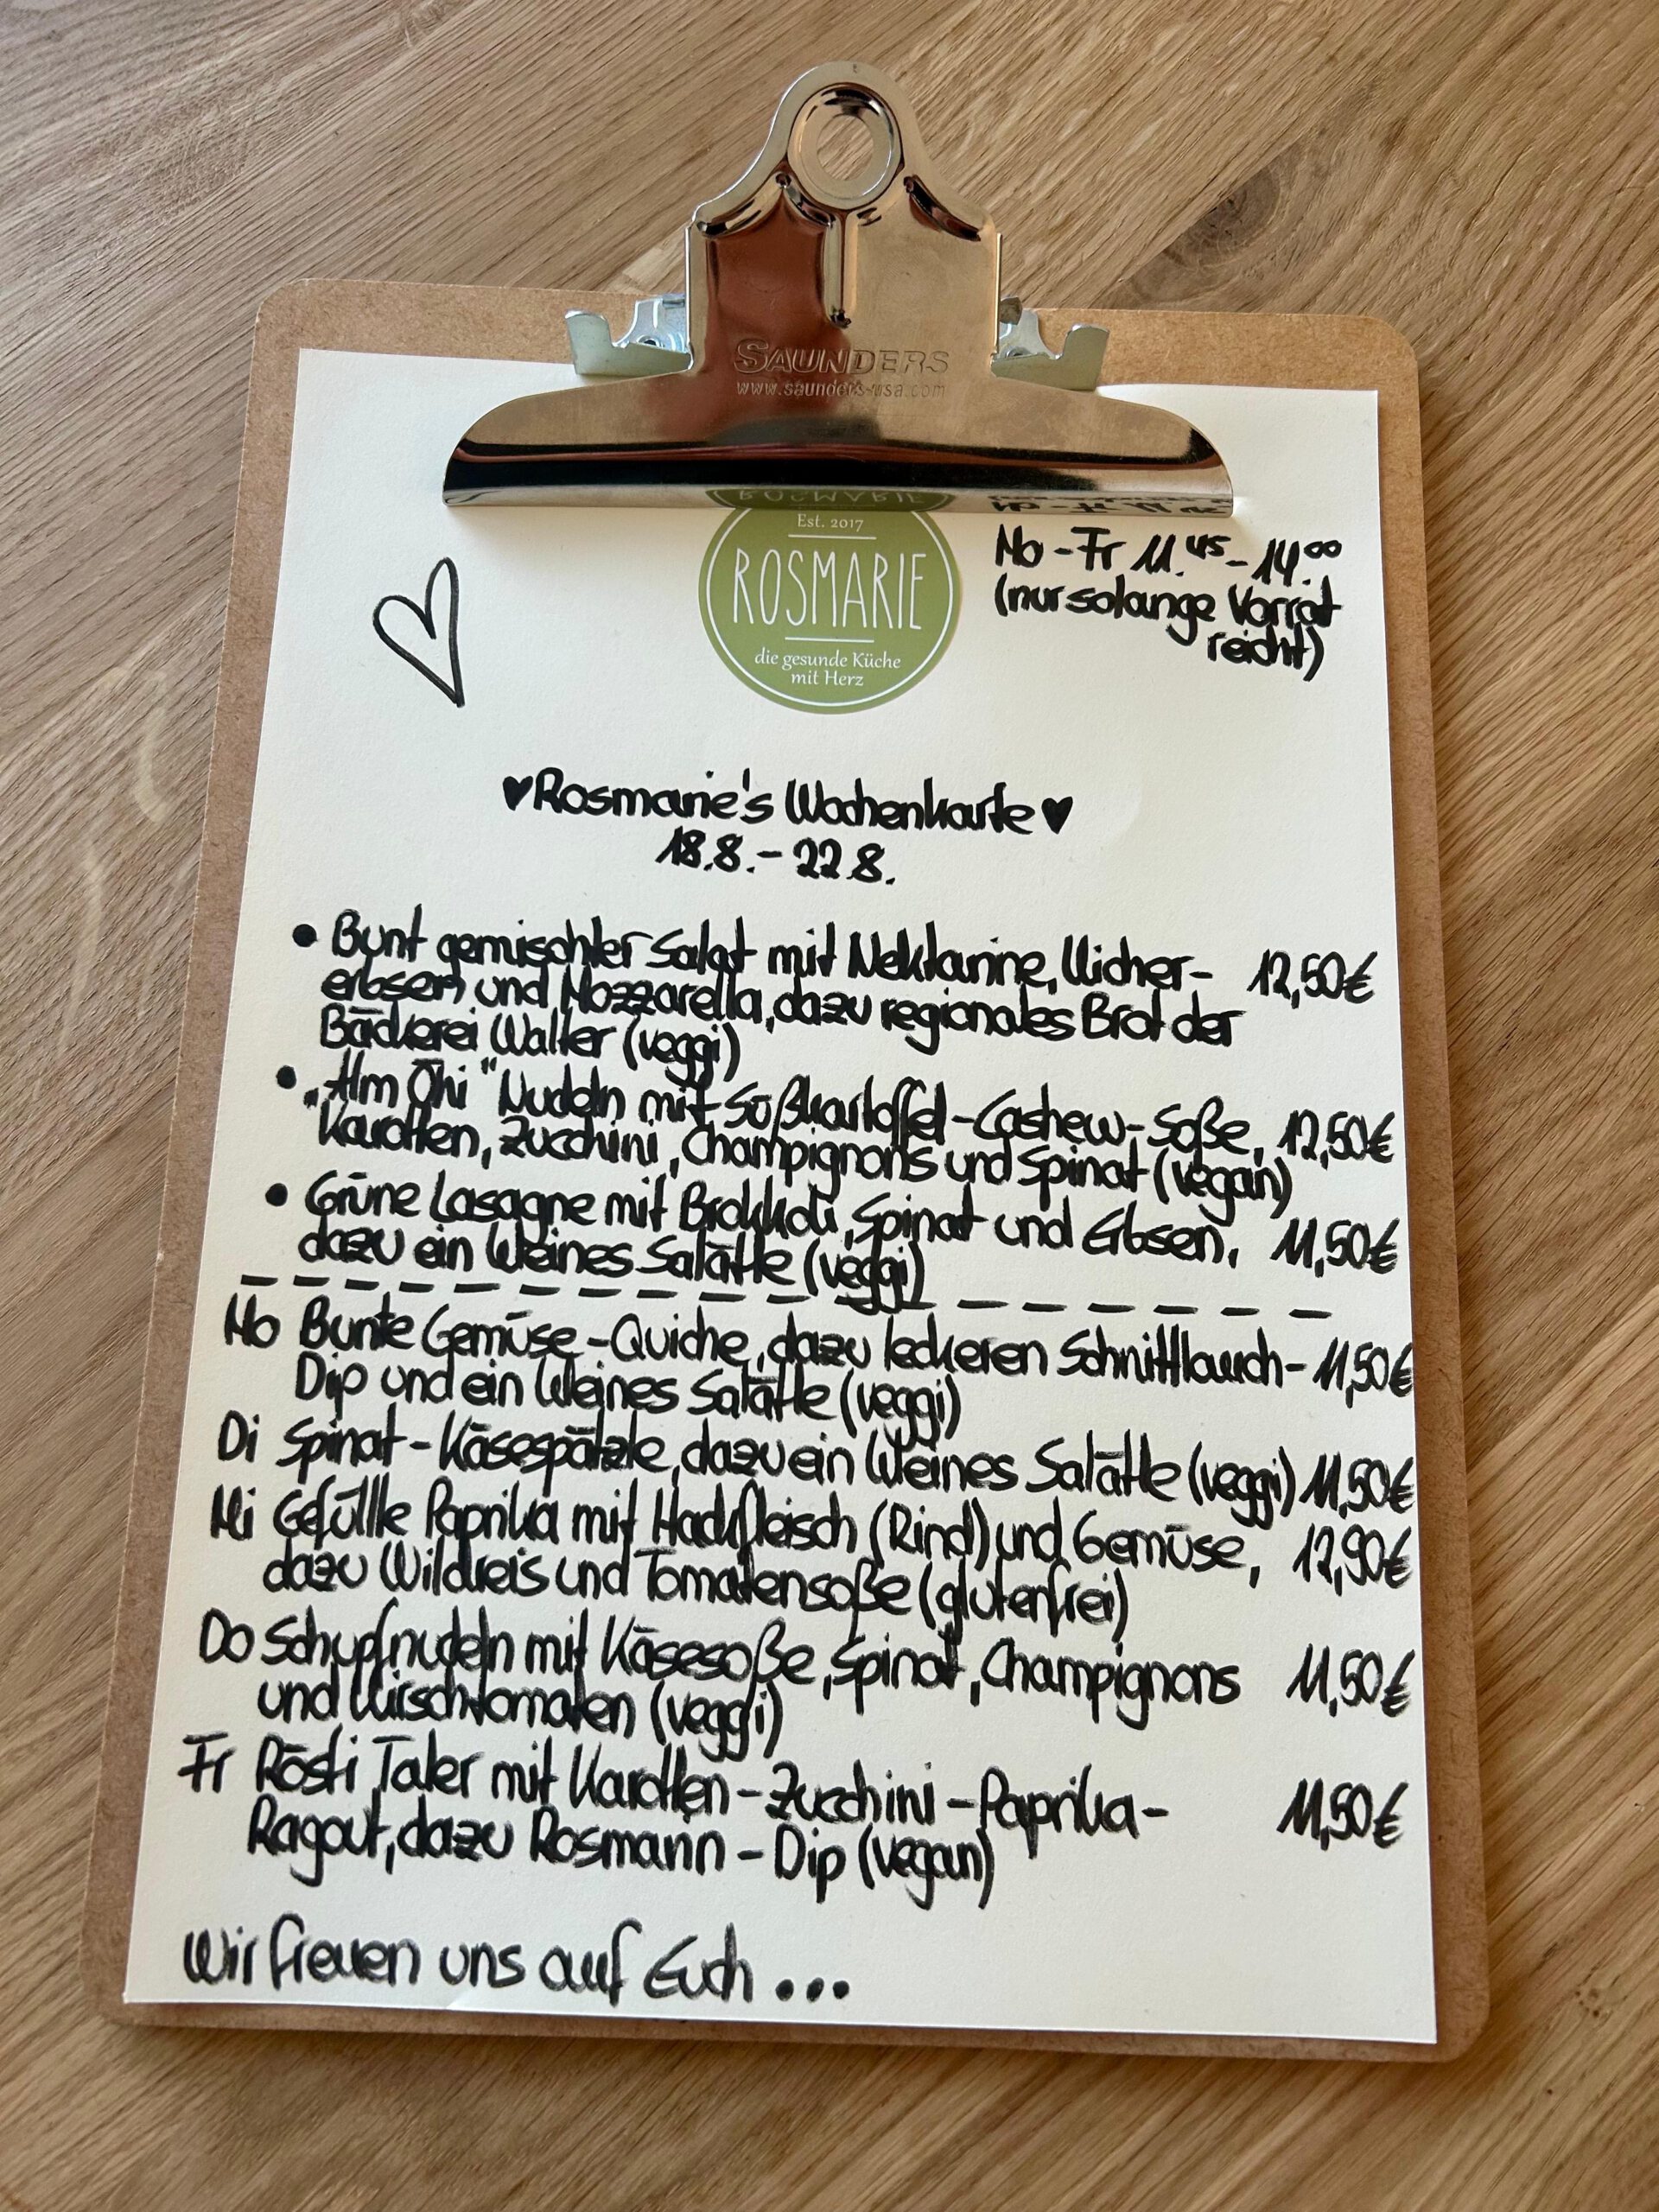 SAUNDERS
www.saunders-usa.com
Est. 2017
ROSMARIE
die gesunde Küche
mit Herz
Mo - Fr 11.45 - 14.00
(nur solange Vorrat
reicht)
♥Rosmarie's Wochenkarte♥
18.8. - 22.8.
• Bunt gemischter Salat mit Nektarine, Kicher- 12,50€
erbsen und Mozzarella, dazu regionales Brot der
Bäckerei Walter (veggi)
• „Alm Öhi" Nudeln mit Süßkartoffel-Cashew-Soße, 12,50€
Karotten, Zucchini, Champignons und Spinat (vegan)
• Grüne Lasagne mit Brokkoli, Spinat und Erbsen, 11,50€
dazu ein kleines Salätle (veggi)
Mo Bunte Gemüse-Quiche, dazu leckeren Schnittlauch- 11,50€
Dip und ein kleines Salätle (veggi)
Di Spinat-Käsespätzle, dazu ein kleines Salätle (veggi) 11,50€
Mi Gefüllte Paprika mit Hackfleisch (Rind) und Gemüse, 12,90€
dazu Wildreis und Tomatensoße (glutenfrei)
Do Schupfnudeln mit Käsesoße, Spinat, Champignons 11,50€
und Kirschtomaten (veggi)
Fr Rösti Taler mit Karotten-Zucchini-Paprika- 11,50€
Ragout, dazu Rosmann-Dip (vegan)
Wir freuen uns auf Euch ...